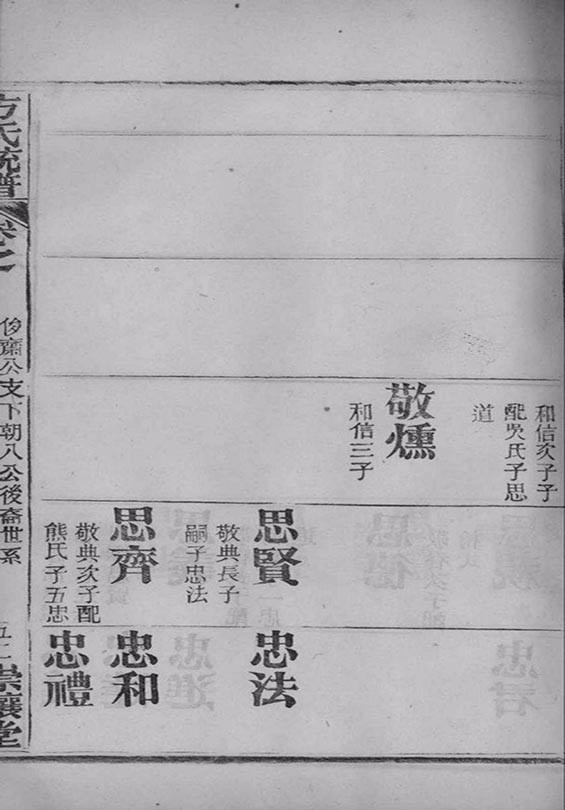 和信次子
配吳氏子思
道
敬燻
和信三子
思賢
敬典長子
嗣子忠法
思齊
敬典次子配
熊氏子五忠
忠法
忠和
忠禮
方氏統譜
卷之
支下朝八公後裔世系
崇讓堂